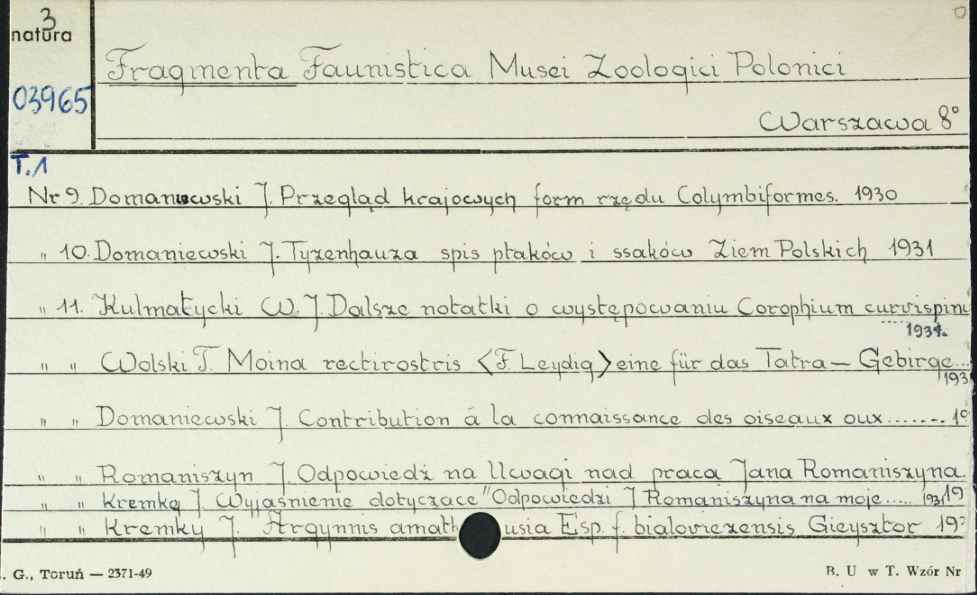 3
natura
03965
Fragmenta Faunistica Musei Zoologici Polonici
Warszawa 8°
T.1
Nr 9. Domaniewski J. Przegląd krajowych form rzędu Colymbiformes. 1930
„ 10. Domaniewski J. Tyzenhauza spis ptaków i ssaków Ziem Polskich 1931
„ 11. Kulmatycki W. J. Dalsze notatki o występowaniu Corophium curvispinu
1931.
„ „ Wolski T. Moina rectirostris <F. Leydig> eine für das Tatra - Gebirge...
193
„ „ Domaniewski J. Contribution á la connaissance des oiseaux oux.......
„ „ Romaniszyn J Odpowiedź na Uwagi nad pracą Jana Romaniszyna.
„ „ Kremky J Wyjaśnienie dotyczące "Odpowiedzi J Romaniszyna na moje..... 1931
„ „ Kremky J. Argynnis amathusia Esp. f. bialoviezensis Gieysztor
. G., Toruń — 2371-49
B. U w T. Wzór Nr